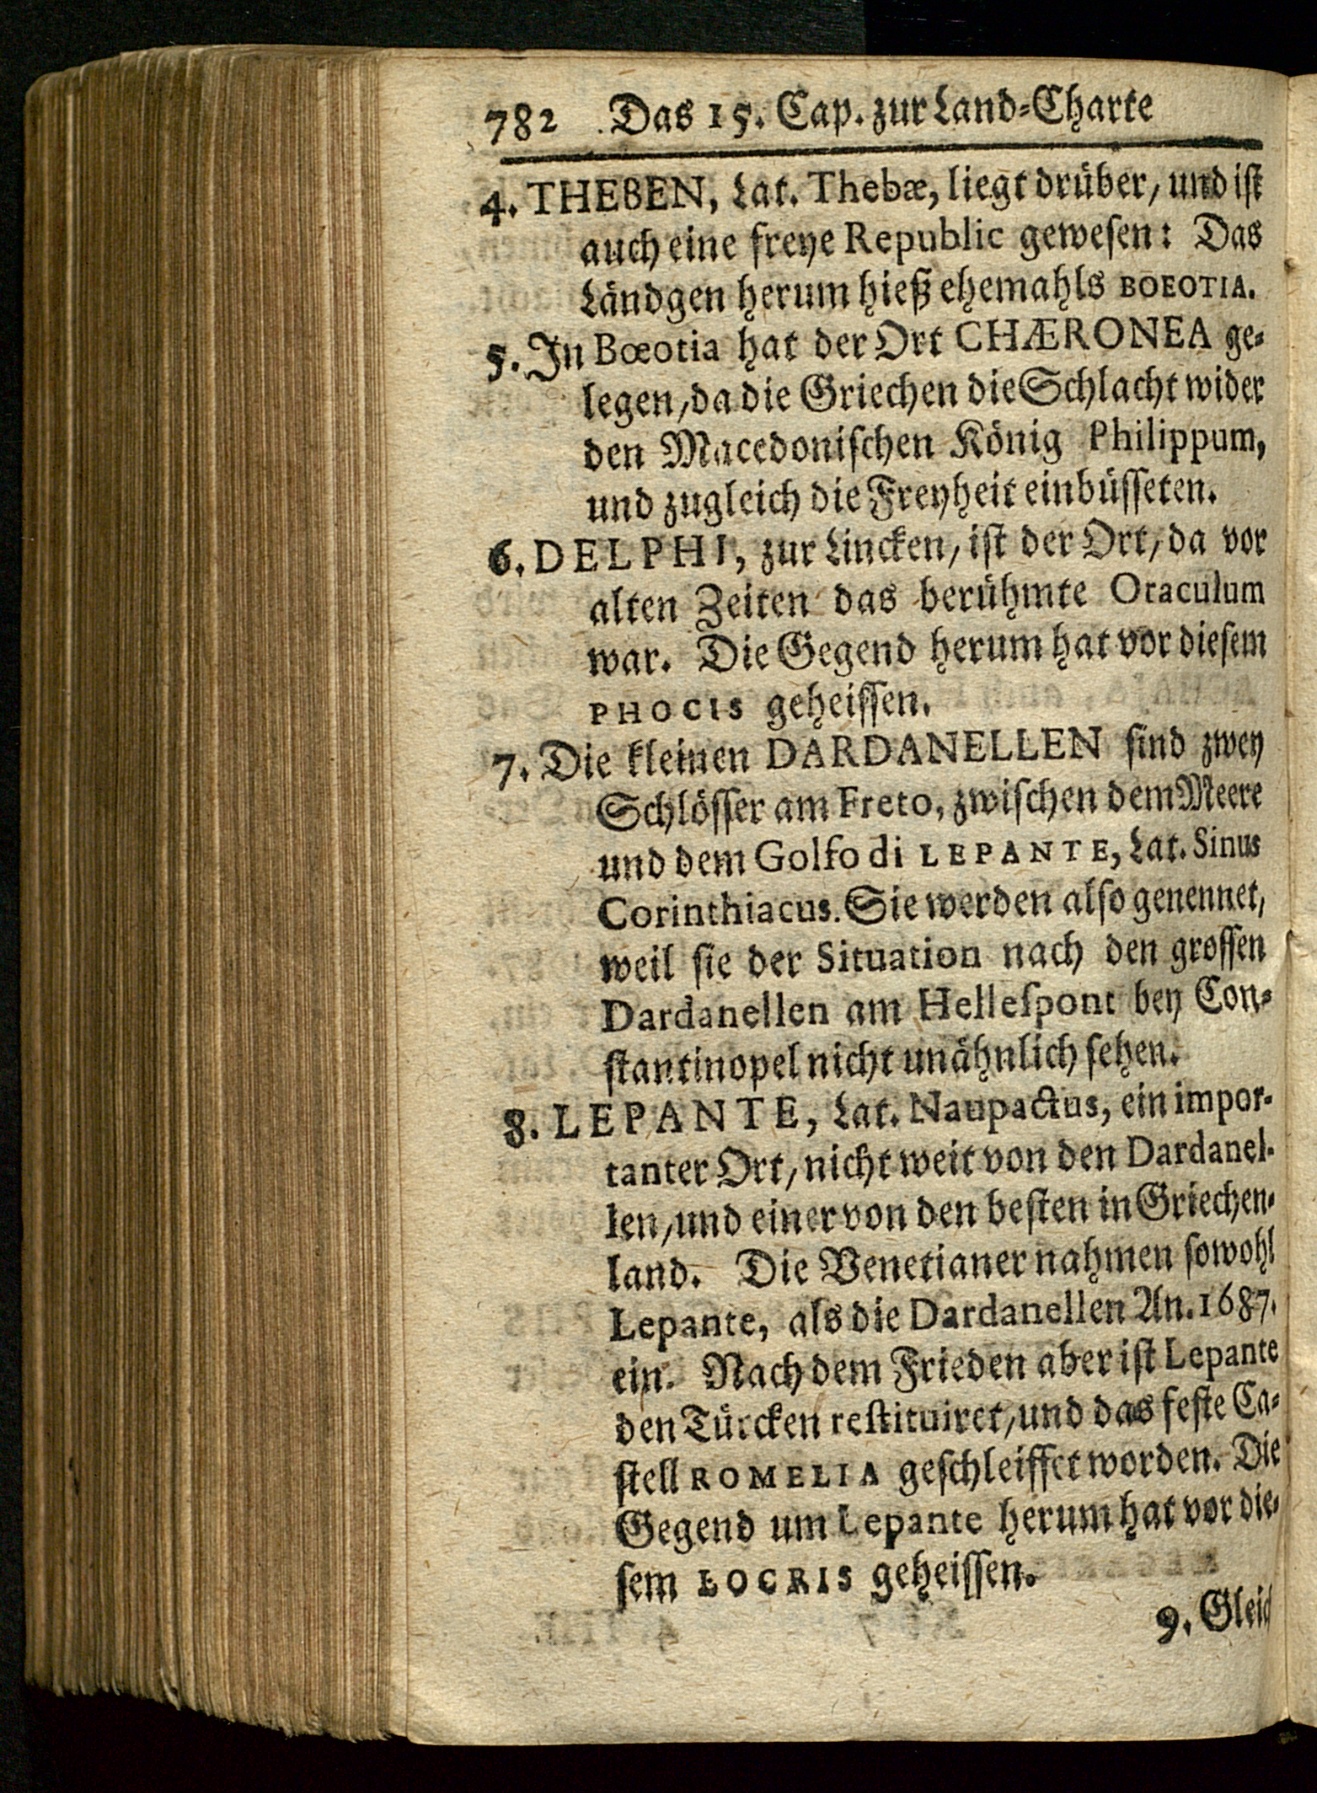 782 Das 15. Cap. zur Land-Charte
4. THEBEN, Lat. Thebæ, liegt drüber, und ist
auch eine freye Republic gewesen: Das
Ländgen herum hieß ehemahls BOEOTIA.
5. In Bœotia hat der Ort CHÆRONEA ge-
legen, da die Griechen die Schlacht wider
den Macedonischen König Philippum,
und zugleich die Freyheit einbüsseten.
6. DELPHI, zur Lincken, ist der Ort, da vor
alten Zeiten das berühmte Oraculum
war. Die Gegend herum hat vor diesem
PHOCIS geheissen.
7. Die kleinen DARDANELLEN sind zwey
Schlösser am Freto, zwischen dem Meere
und dem Golfo di LEPANTE, Lat. Sinus
Corinthiacus. Sie werden also genennet,
weil sie der Situation nach den grossen
Dardanellen am Hellespont bey Con-
stantinopel nicht unähnlich sehen.
8. LEPANTE, Lat. Naupactus, ein impor-
tanter Ort, nicht weit von den Dardanel-
len, und einer von den besten in Griechen-
land. Die Venetianer nahmen sowohl
Lepante, als die Dardanellen An. 1687.
ein. Nach dem Frieden aber ist Lepante
den Türcken restituiret, und das feste Ca-
stell ROMELIA geschleiffet worden. Die
Gegend um Lepante herum hat vor die-
sem LOCRIS geheissen.
9. Gleich